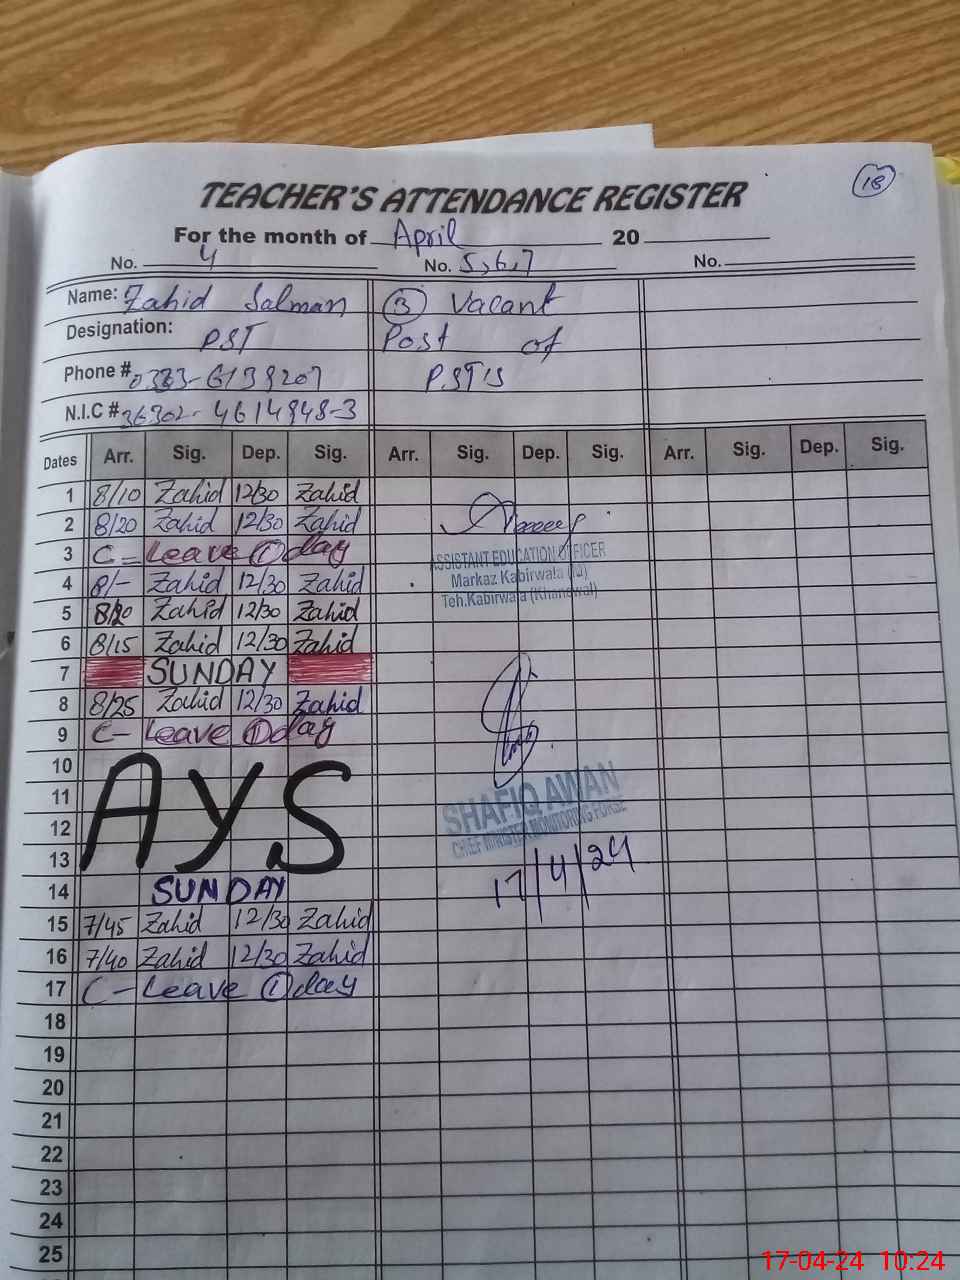 18
TEACHER'S ATTENDANCE REGISTER
For the month of April 20
No. 4 No. 5,6,7 No.
Name: Zahid Salman ③ Vacant
Designation: PST Post of
Phone # 0333-6138207 PST'S
N.I.C # 36302-4614848-3
Dates Arr. Sig. Dep. Sig. Arr. Sig. Dep. Sig. Arr. Sig. Dep. Sig.
1 8/10 Zahid 12/30 Zahid
2 8/20 Zahid 12/30 Zahid
3 C-Leave ① day
ASSISTANT EDUCATION OFFICER
4 8/- Zahid 12/30 Zahid
Markaz Kabirwala
Teh.Kabirwala (Khanewal)
5 8/20 Zahid 12/30 Zahid
6 8/15 Zahid 12/30 Zahid
7 SUNDAY
8 8/25 Zahid 12/30 Zahid
9 C- Leave ① day
10
11
12
13
AYS
SHAFIQ AWAN
CHIEF MINISTER MONITORING FORCE
17/4/24
14 SUNDAY
15 7/45 Zahid 12/30 Zahid
16 7/40 Zahid 12/30 Zahid
17 C- Leave ① day
18
19
20
21
22
23
24
25
17-04-24 10:24